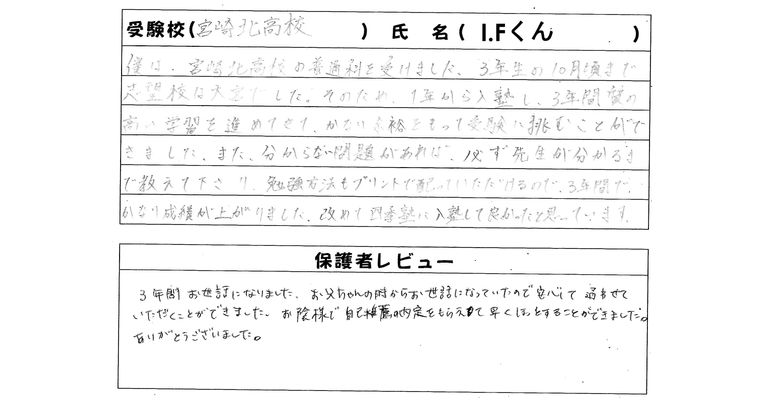 受験校(宮崎北高校　　)　氏　名(　I.Fくん　　)
僕は、宮崎北高校の普通科を受けました。3年生の10月頃まで
志望校は大宮でした。そのため、1年から入塾し、3年間質の
高い学習を進めてきて、かなり余裕をもって受験に挑むことがで
きました。また、分からない問題があれば、必ず先生が分かるま
で教えて下さり、勉強方法もプリントで配っていただけるので、3年間で、
かなり成績が上がりました。改めて 塾に入塾して良かったと思っています。
保護者レビュー
3年間お世話になりました。お父ちゃんの時からお世話になっていたので安心して過させて
いただくことができました。お陰様で自己推薦の内定をもらえて早くほっとすることができました。
ありがとうございました。